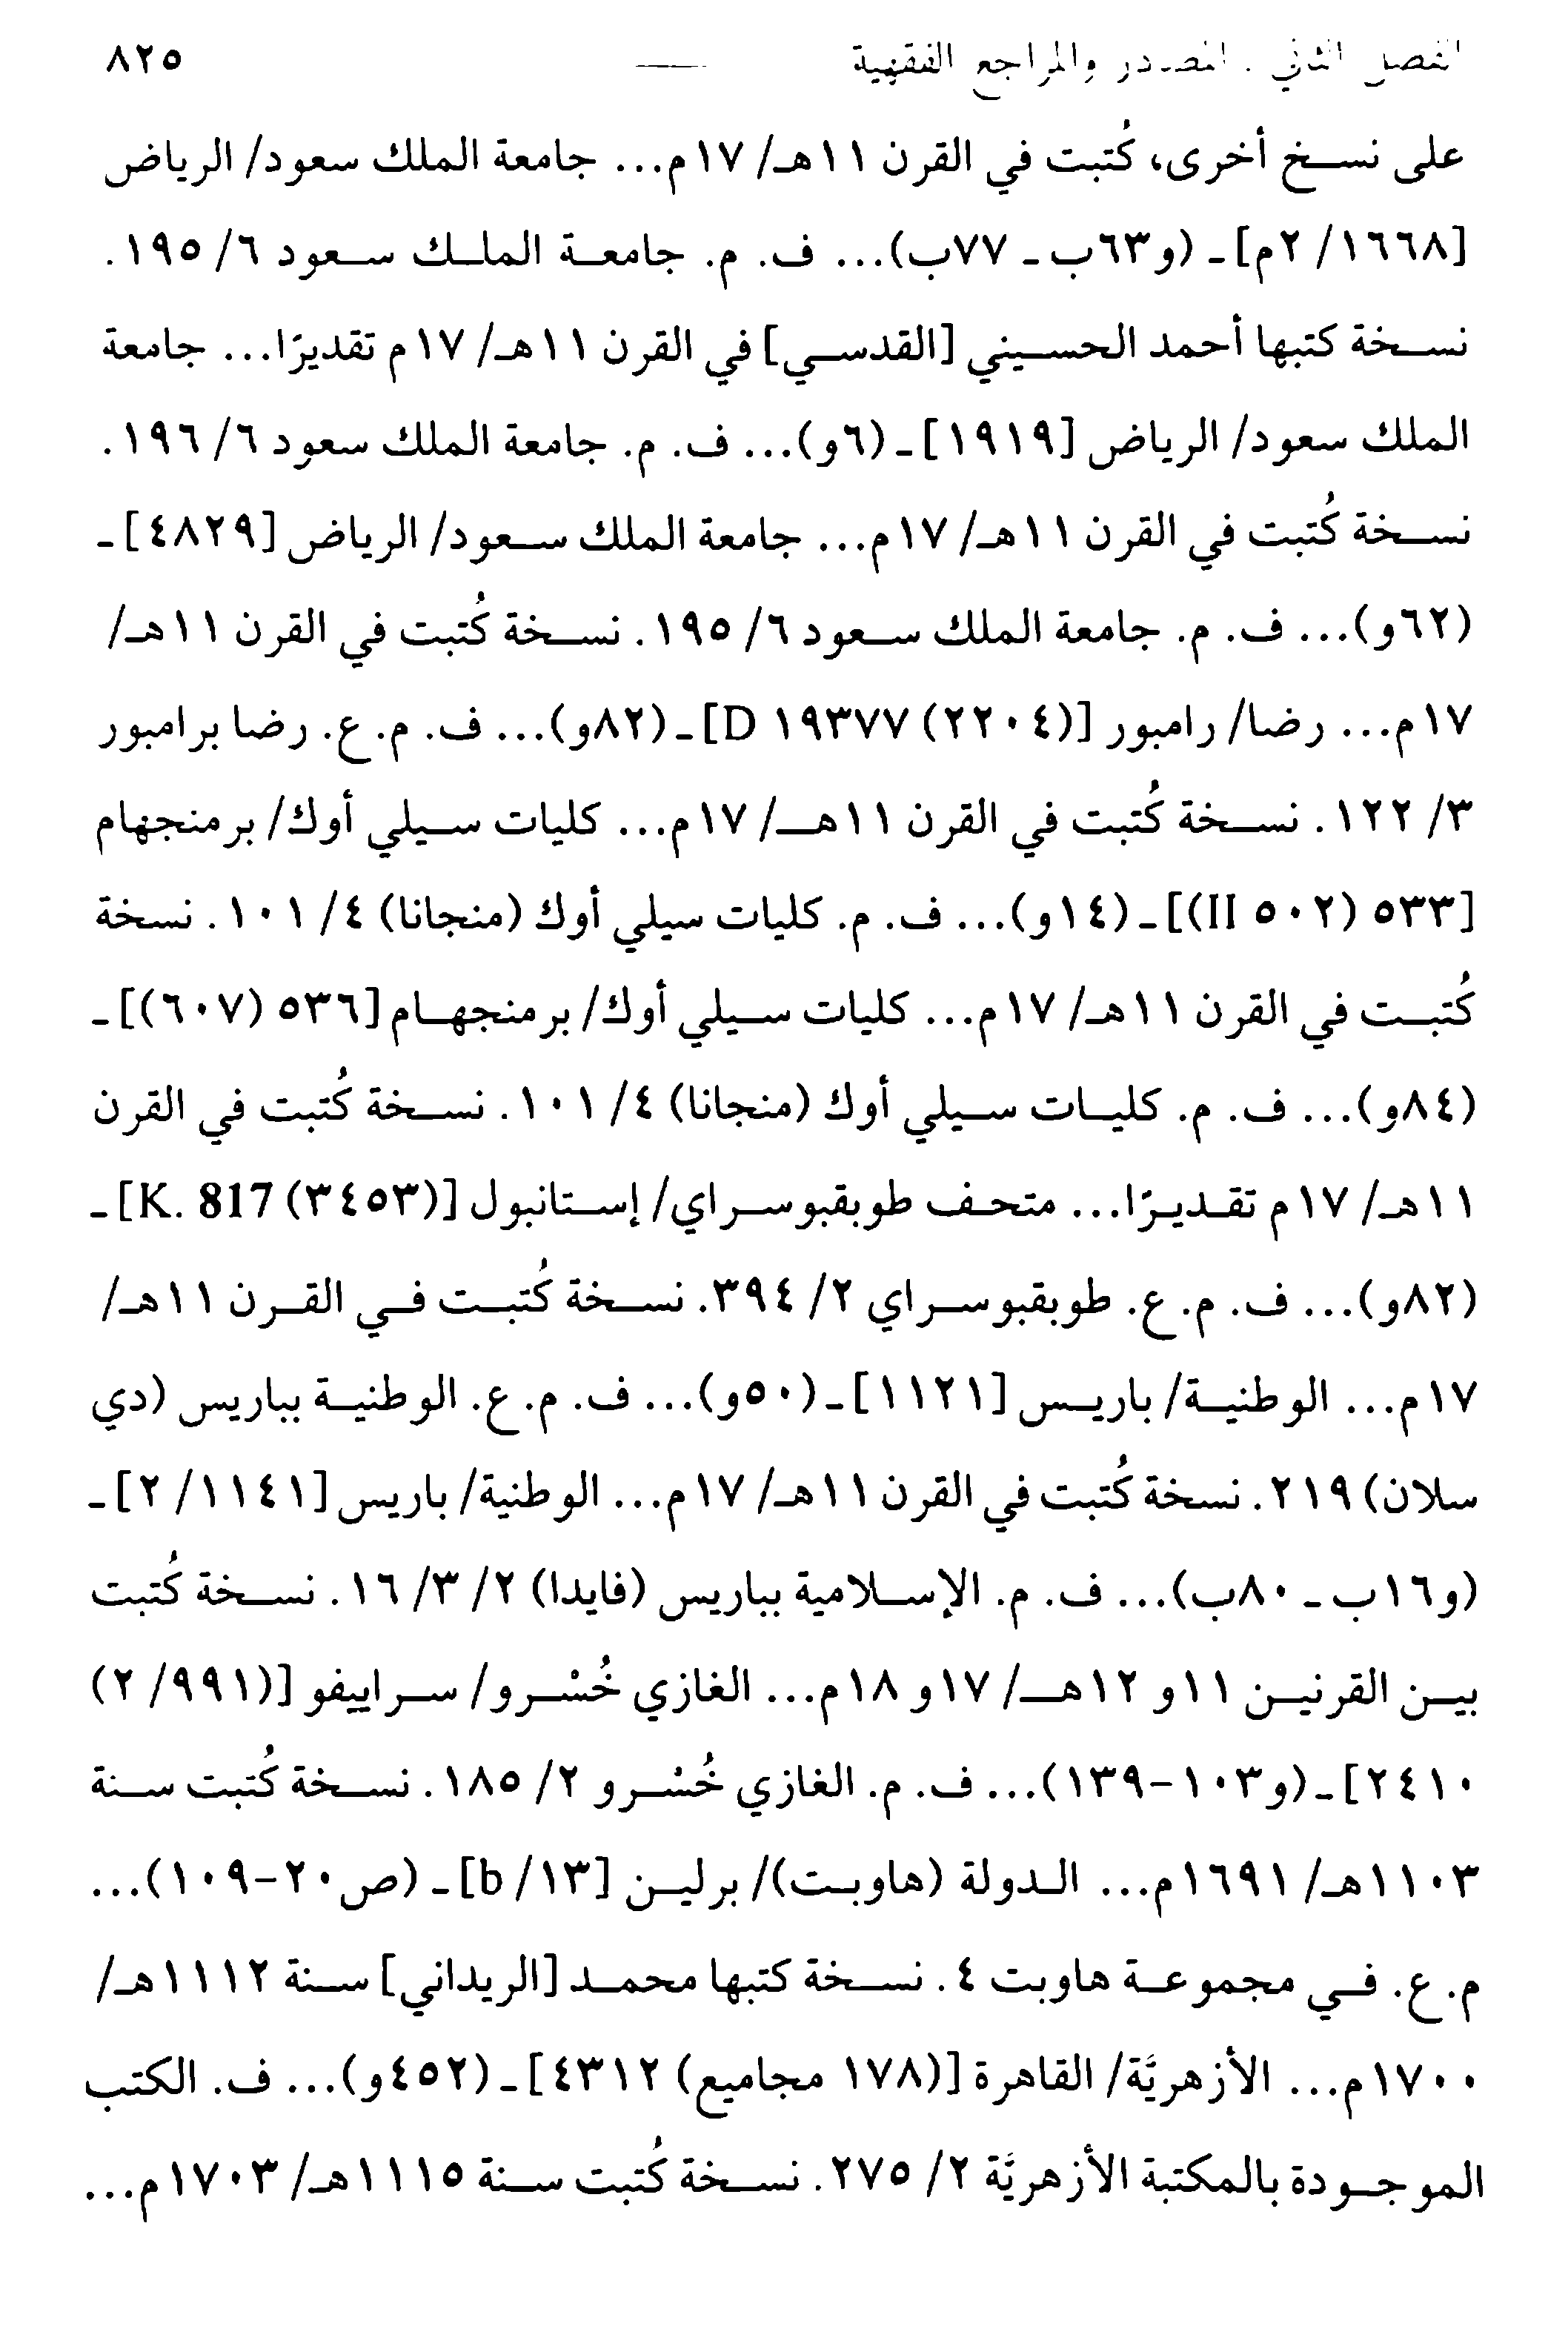 الفصل الثاني: المصادر والمراجع الفقهية ٨٢٥
على نسخ أخرى، كُتبت في القرن ١١هـ/ ١٧م... جامعة الملك سعود/ الرياض
[١٦٦٨/ ٢م] ـ (و٦٣ب ـ ٧٧ب)... ف. م. جامعة الملك سعود ٦/ ١٩٥.
نسخة كتبها أحمد الحسيني [القدسي] في القرن ١١هـ/ ١٧م تقديرًا... جامعة
الملك سعود/ الرياض [١٩١٩] ـ (٦و)... ف. م. جامعة الملك سعود ٦/ ١٩٦.
نسخة كُتبت في القرن ١١هـ/ ١٧م... جامعة الملك سعود/ الرياض [٤٨٢٩] ـ
(٦٢و)... ف. م. جامعة الملك سعود ٦/ ١٩٥. نسخة كُتبت في القرن ١١هـ/
١٧م... رضا/ رامبور [(٢٢٠٤) ١٩٣٧٧ D] ـ (٨٢و)... ف. م. ع. رضا برامبور
٣/ ١٢٢. نسخة كُتبت في القرن ١١هـ/ ١٧م... كليات سيلي أوك/ برمنجهام
[٥٣٣ (٥٠٢ II)] ـ (١٤و)... ف. م. كليات سيلي أوك (منجانا) ٤/ ١٠١. نسخة
كُتبت في القرن ١١هـ/ ١٧م... كليات سيلي أوك/ برمنجهام [٥٣٦ (٦٠٧)] ـ
(٨٤و)... ف. م. كليات سيلي أوك (منجانا) ٤/ ١٠١. نسخة كُتبت في القرن
١١هـ/ ١٧م تقديرًا... متحف طوبقبوسراي/ إستانبول [(٣٤٥٣) K. 817] ـ
(٨٢و)... ف. م. ع. طوبقبوسراي ٢/ ٣٩٤. نسخة كُتبت في القرن ١١هـ/
١٧م... الوطنية/ باريس [١١٢١] ـ (٥٠و)... ف. م. ع. الوطنية بباريس (دي
سلان) ٢١٩. نسخة كُتبت في القرن ١١هـ/ ١٧م... الوطنية/ باريس [١١٤١/ ٢] ـ
(و١٦ب ـ ٨٠ب)... ف. م. الإسلامية بباريس (فايدا) ٢/ ٣/ ١٦. نسخة كُتبت
بين القرنين ١١و ١٢هـ/ ١٧و ١٨م... الغازي خُسْرو/ سراييفو [(٩٩١/ ٢)
٢٤١٠] ـ (و١٠٣-١٣٩)... ف. م. الغازي خُسْرو ٢/ ١٨٥. نسخة كُتبت سنة
١١٠٣هـ/ ١٦٩١م... الدولة (هاوبت)/ برلين [١٣/ b] ـ (ص٢٠-١٠٩)...
م. ع. في مجموعة هاوبت ٤. نسخة كتبها محمد [الريداني] سنة ١١١٢هـ/
١٧٠٠م... الأزهريَّة/ القاهرة [(١٧٨ مجاميع) ٤٣١٢] ـ (٤٥٢و)... ف. الكتب
الموجودة بالمكتبة الأزهريَّة ٢/ ٢٧٥. نسخة كُتبت سنة ١١١٥هـ/ ١٧٠٣م...